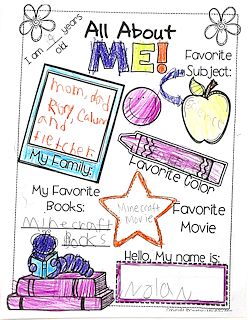 All About
ME!
I am 6 years old
Favorite
Subject:
Science
mom, dad
Roy, Calum
and
fletcher
My Family:
Favorite Color
My Favorite
Books:
Minecraft
Books
Minecraft
Movie
Favorite
Movie
Hello, My name is:
Nolan